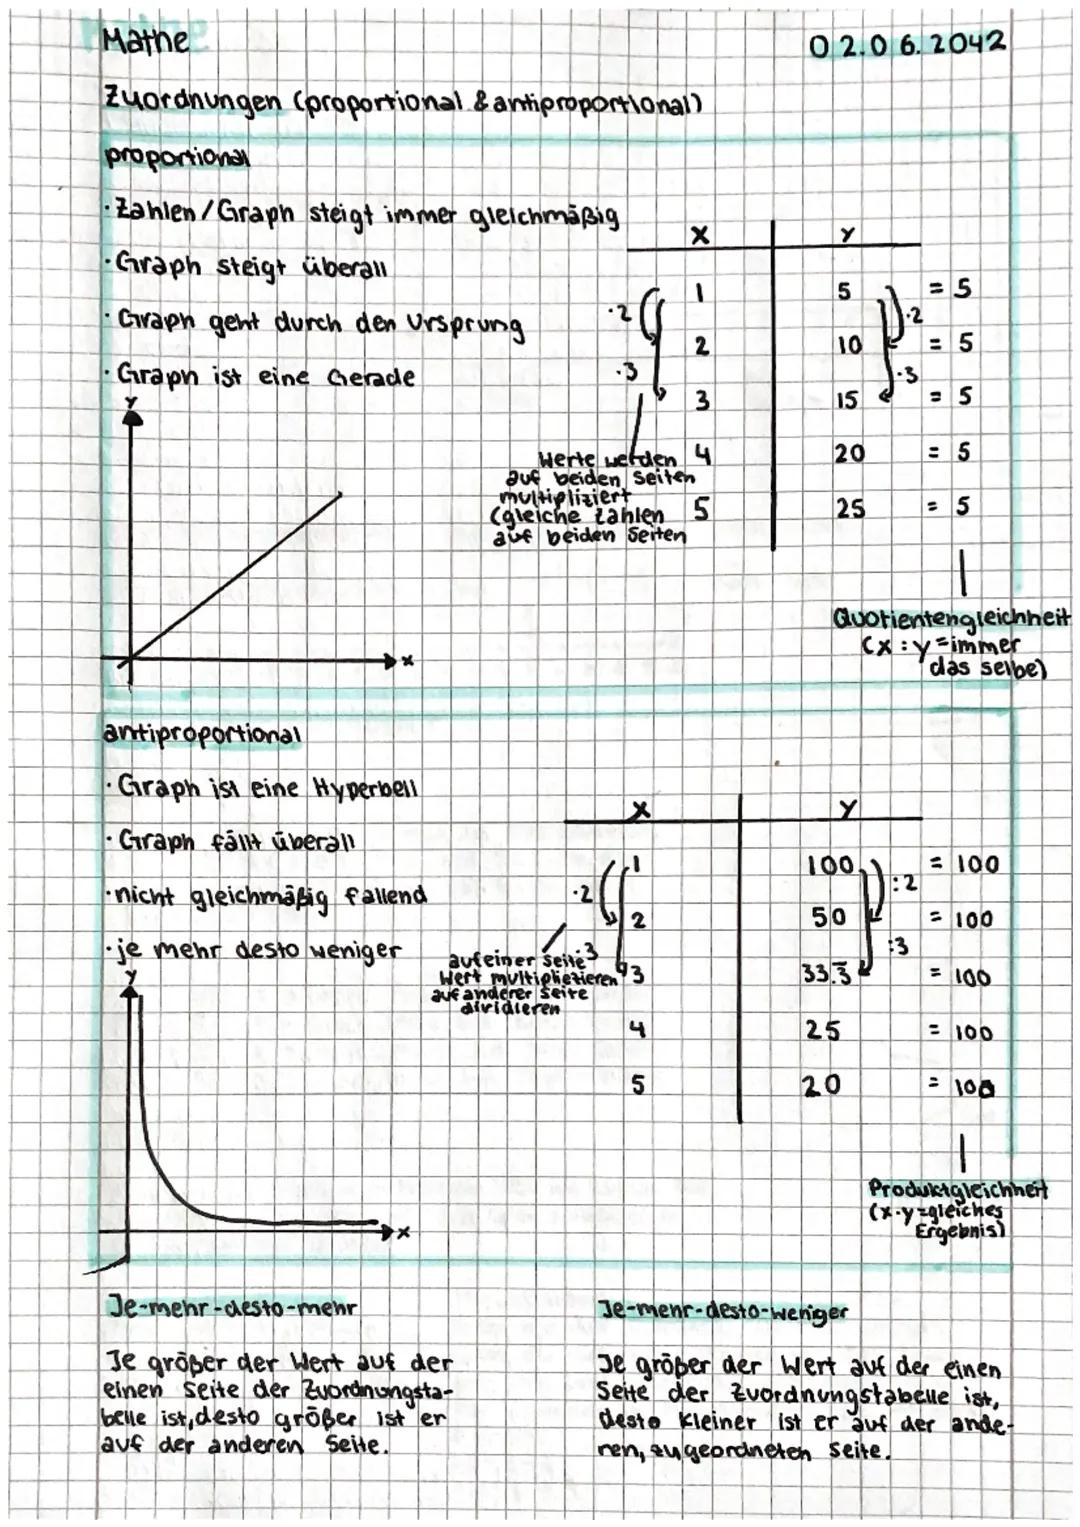 Mathe
02.06.2042
Zuordnungen (proportional & antiproportional)
proportional
· Zahlen/Graph steigt immer gleichmäßig
· Graph steigt überall
· Graph geht durch den Ursprung
· Graph ist eine Gerade
x y
1 5 = 5
·2 ·2
2 10 = 5
·3 ·3
3 15 = 5
4 20 = 5
5 25 = 5
Werte werden
auf beiden Seiten
multipliziert
(gleiche Zahlen
auf beiden Seiten
y
x
Quotientengleichheit
(x : y = immer
das selbe)
antiproportional
· Graph ist eine Hyperbell
· Graph fällt überall
· nicht gleichmäßig fallend
· je mehr desto weniger
x y
1 100 = 100
·2 :2
2 50 = 100
·3 :3
3 33.3̅ = 100
4 25 = 100
5 20 = 100
auf einer Seite
Wert multiplietieren
auf anderer Seite
dividieren
y
x
Produktgleichheit
(x·y = gleiches
Ergebnis)
Je-mehr-desto-mehr
Je größer der Wert auf der
einen Seite der Zuordnungsta-
belle ist, desto größer ist er
auf der anderen Seite.
Je-mehr-desto-weniger
Je größer der Wert auf der einen
Seite der Zuordnungstabelle ist,
desto kleiner ist er auf der ande-
ren, zugeordneten Seite.